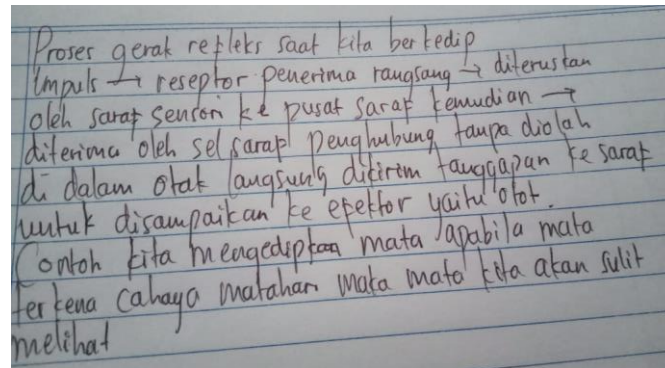 Proses gerak refleks saat kita berkedip
Impuls → reseptor penerima rangsang → diteruskan
oleh saraf sensori ke pusat saraf kemudian →
diterima oleh sel saraf penghubung tanpa diolah
di dalam otak langsung dikirim tanggapan ke saraf
untuk disampaikan ke efektor yaitu otot.
Contoh kita mengedipkan mata apabila mata
terkena cahaya matahari maka mata kita akan sulit
melihat